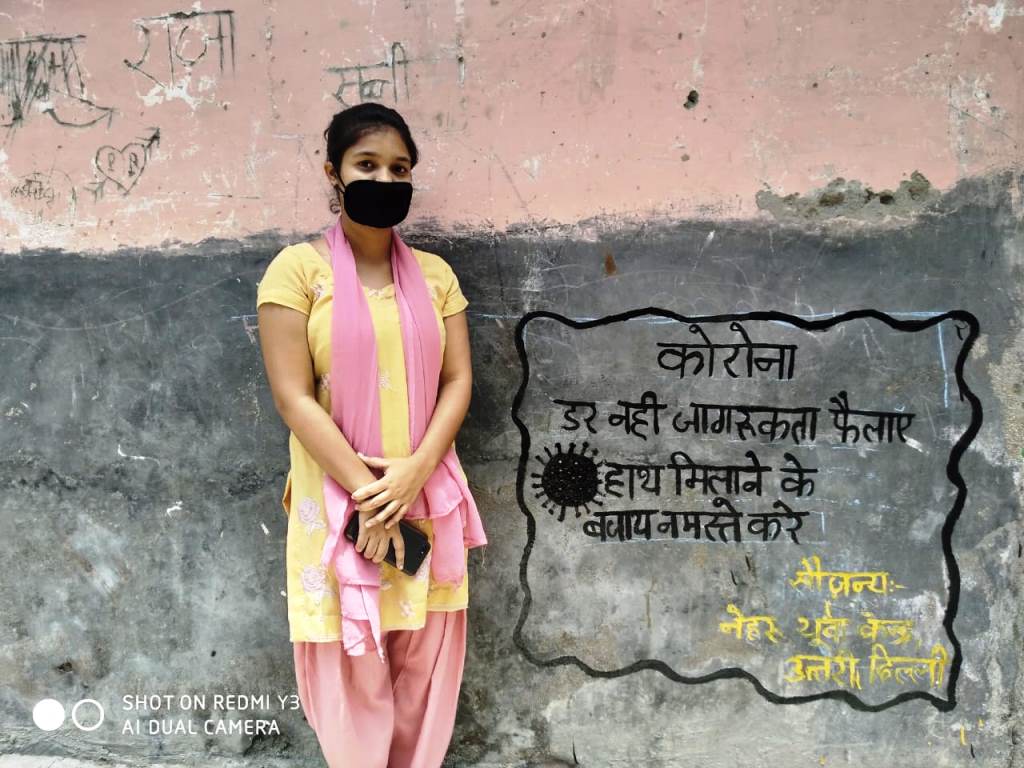 राजा
सनी
P R
कोरोना
डर नही जागरूकता फैलाए
हाथ मिलाने के
बजाय नमस्ते करे
सौजन्य:-
नेहरू युवा केन्द्र
उत्तरी दिल्ली
SHOT ON REDMI Y3
AI DUAL CAMERA